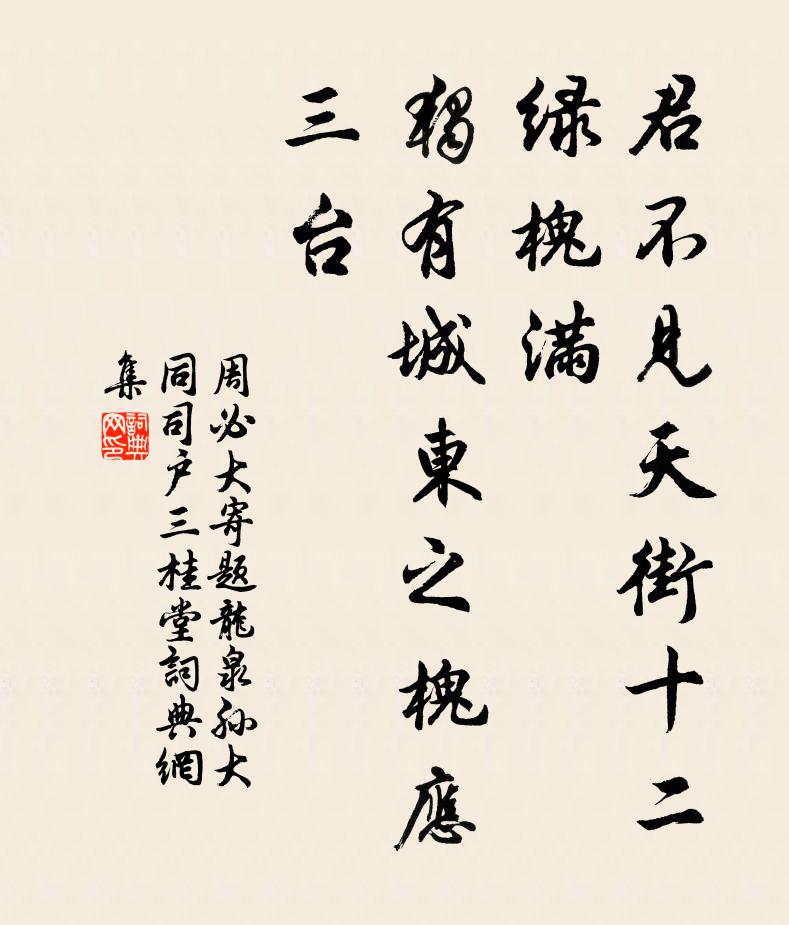 君不見天街十二
緑槐滿
獨有城東之槐應
三台
周必大寄題龍泉孙大
同司户三桂堂詞典網
集
詞典
网印